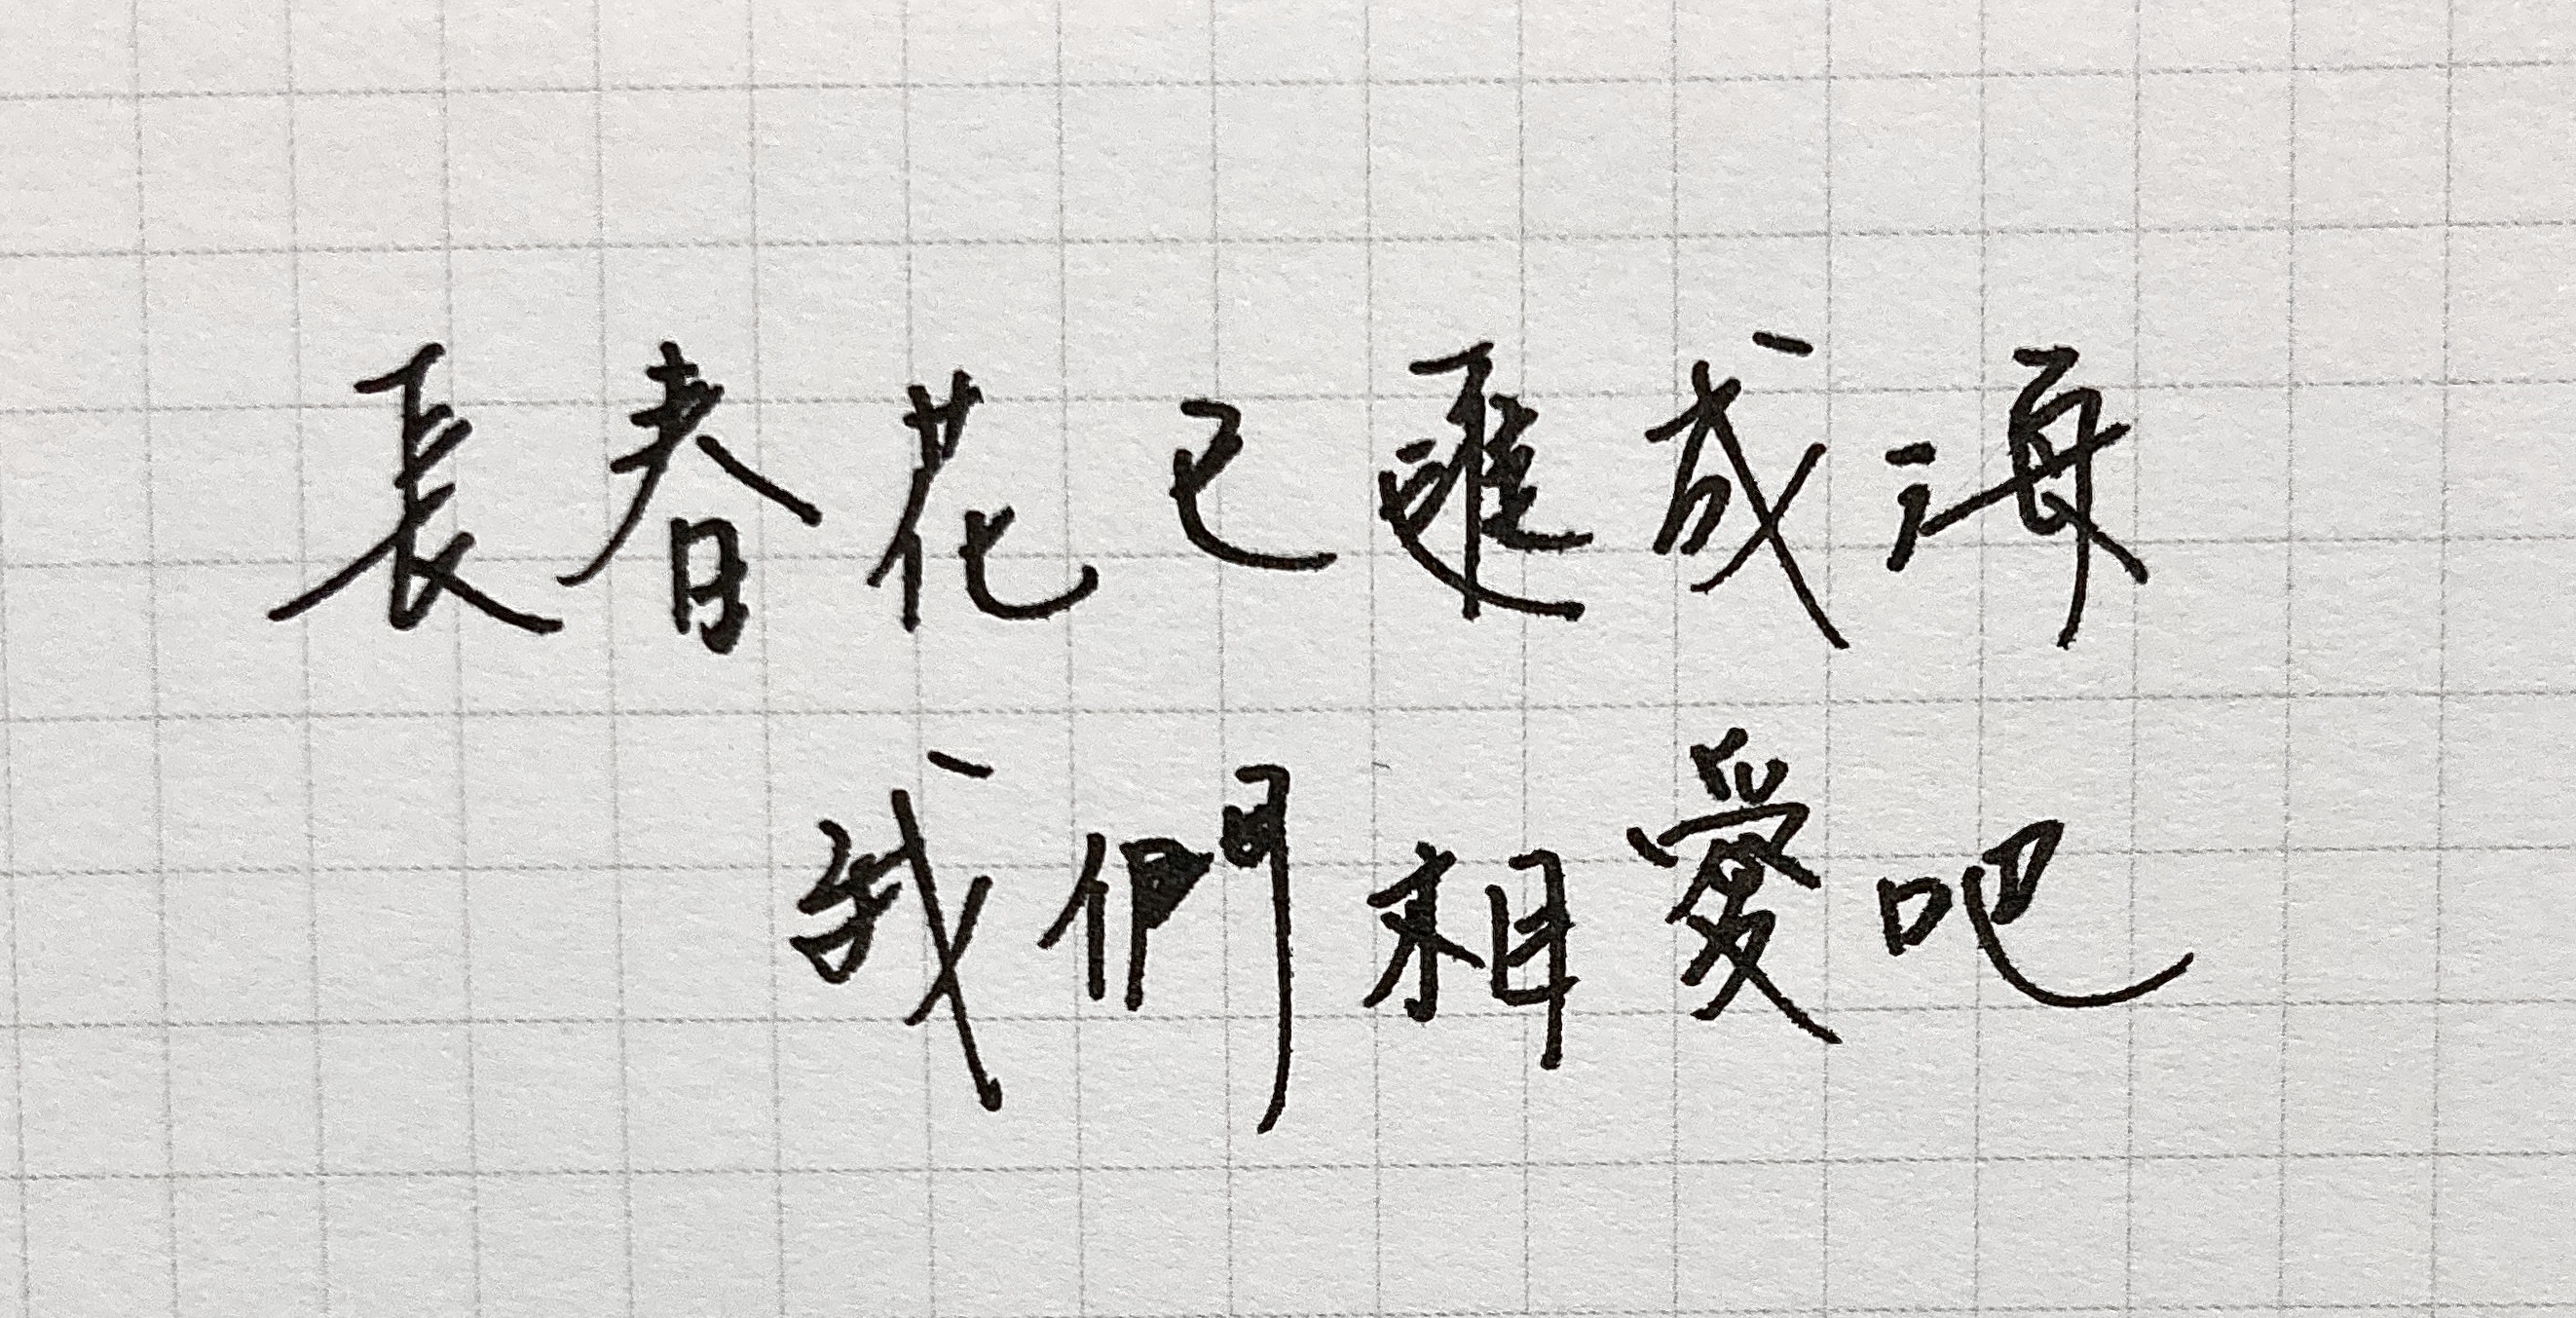 長春花已匯成海
我們相愛吧